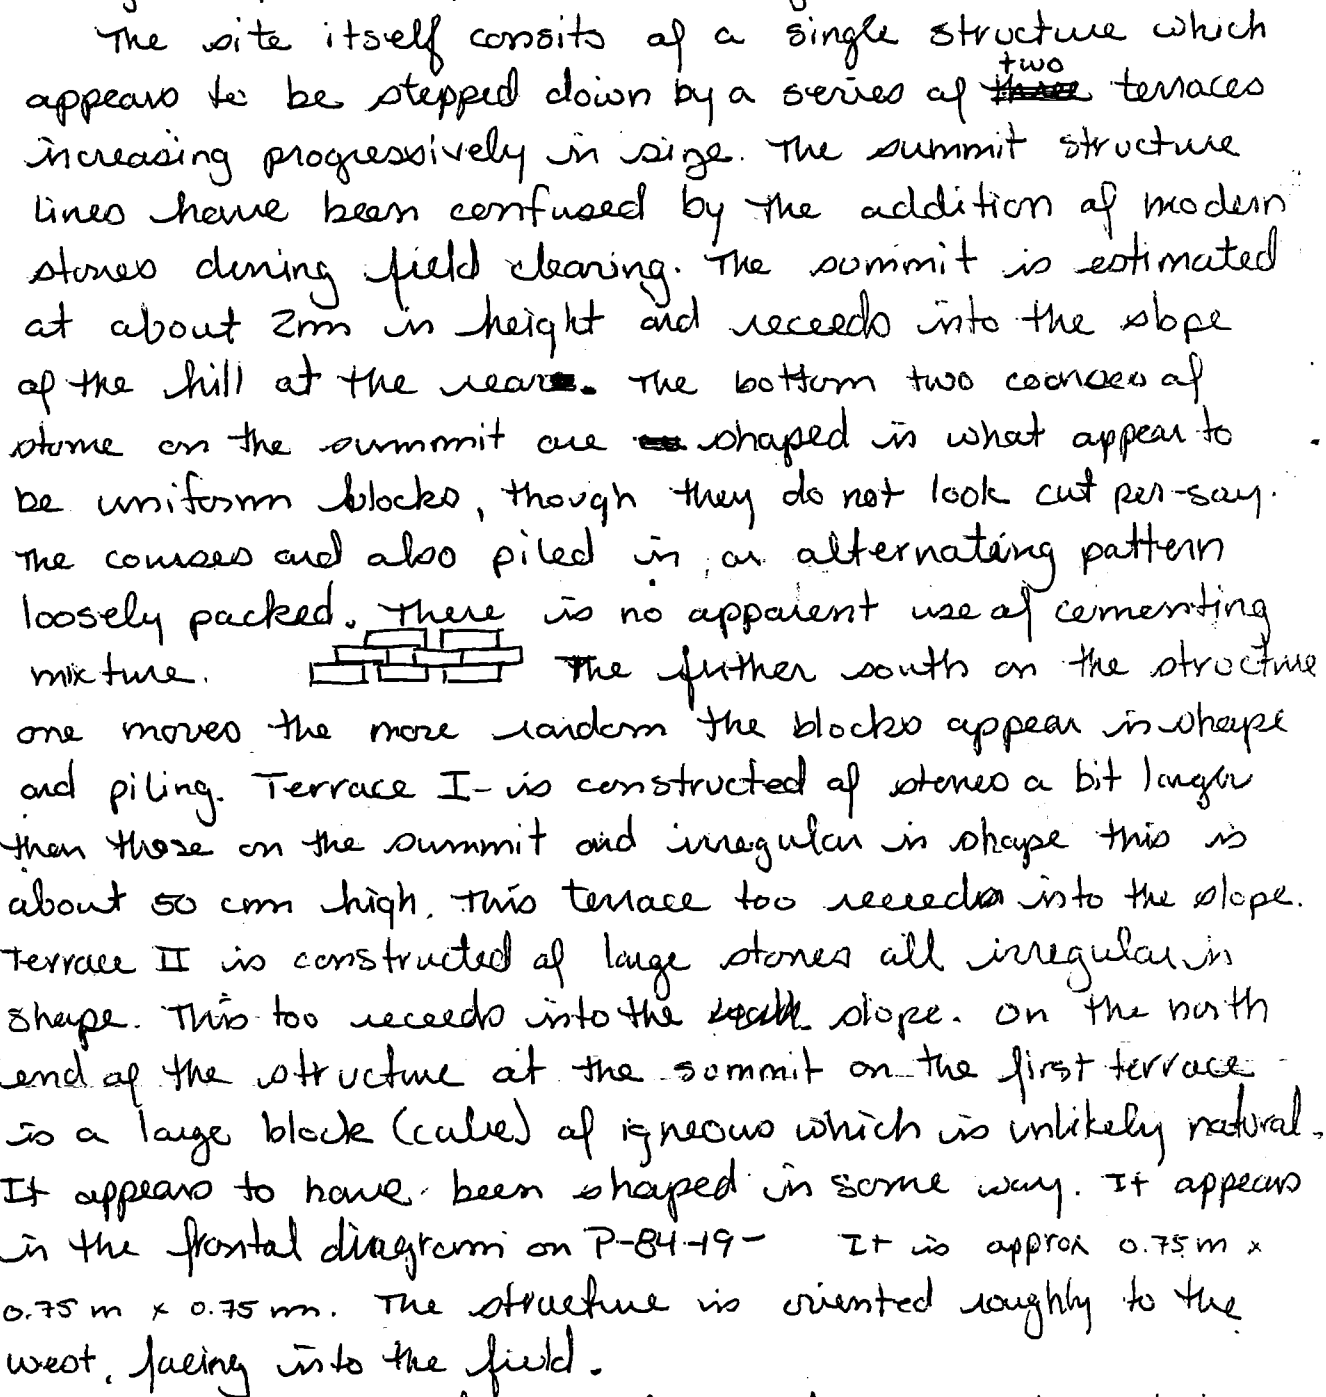 The site itself consits of a single structure which
appears to be stepped down by a series of two terraces
increasing progressively in size. The summit structure
lines have been confused by the addition of modern
stones during field clearing. The summit is estimated
at about 2m in height and receeds into the slope
of the hill at the rear. The bottom two courses of
stone on the summit are shaped in what appear to
be uniform blocks, though they do not look cut per-say.
The courses and also piled in an alternating pattern
loosely packed. There is no apparent use of cementing
mixture. The further south on the structure
one moves the more random the blocks appear in shape
and piling. Terrace I- is constructed of stones a bit larger
than those on the summit and irregular in shape this is
about 50 cm high. This terrace too receeds into the slope.
Terrace II is constructed of large stones all irregular in
shape. This too receeds into the slope. On the north
end of the structure at the summit on the first terrace
is a large block (cube) of igneous which is unlikely natural.
It appears to have been shaped in some way. It appears
in the frontal diagram on P-84-19- It is approx 0.75 m x
0.75 m x 0.75 m. The structure is oriented roughly to the
west, facing into the field.